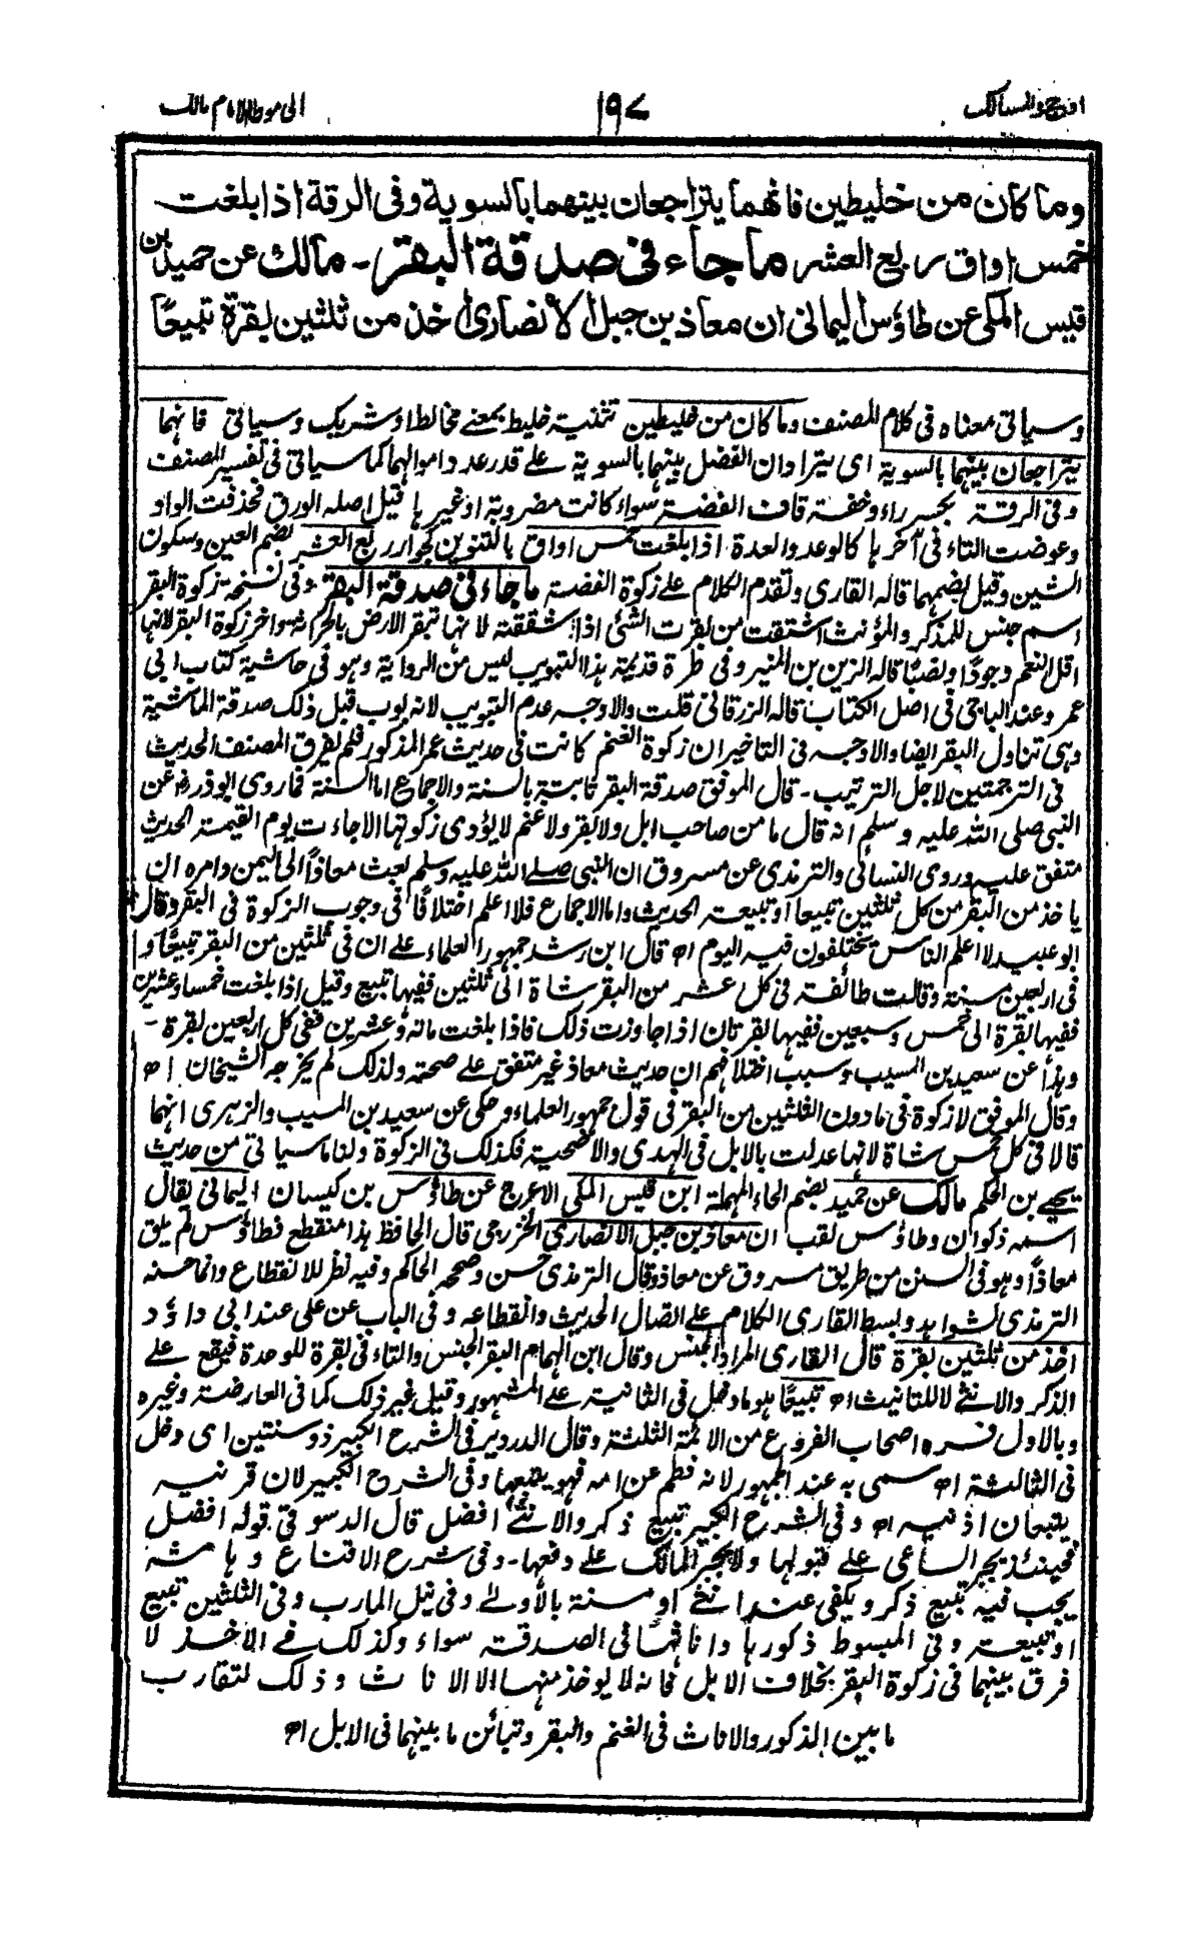 اوجز المسالك
١٩٧
الى موطا الامام مالك
وما كان من خليطين فانهما يتراجعان بينهما بالسوية وفى الرقة اذا بلغت
خمس اواق ربع العشر ما جاء فى صدقة البقر ـ مالك عن حميد بن
قيس المكى عن طاؤس اليمانى ان معاذ بن جبل الانصارى اخذ من ثلثين بقرة تبيعًا
وسياتى معناه فى كلام المصنف وما كان من خليطين تثنية خليط بمعنے مخالط او شريك وسياتى فانهما
يتراجعان بينهما بالسوية اى يترادان الفضل بينهما بالسوية علے قدر عدد اموالهما كما سياتى فى تفسير المصنف
وفى الرقة بكسر راء وخفة قاف الفضة سواء كانت مضروبة او غيرها قيل اصله الورق فحذفت الواو
وعوضت التاء فى آخرها كالوعد والعدة اذا بلغت خمس اواق بالتنوين كجوار ربع العشر بضم العين وسكون
الشين وقيل بضمهما قاله القارى وتقدم الكلام علے زكوة الفضة ما جاء فى صدقة البقر وفى نسخة زكوة البقر
اسم جنس للمذكر والمؤنث اشتقت من بقرت الشئ اذا شققته لانها تبقر الارض بالحراثة واخر زكوة البقر لانها
اقل النعم وجودًا ونصبًا قاله الزين بن المنير وفى طرة قديمة هذا التبويب ليس من الرواية وهو فى حاشية كتاب ابى
عمر وعند الباجى فى اصل الكتاب قاله الزرقانى قلت والاوجه عدم التبويب لانه بوب قبل ذلك صدقة الماشية
وهى تتناول البقر ايضا والاوجه فى التاخير ان زكوة الغنم كانت فى حديث عمر المذكور فلم يفرق المصنف الحديث
فى الترجمتين لاجل الترتيب ـ قال الموفق صدقة البقر ثابتة بالسنة والاجماع اما السنة فما روى ابوذر رض عن
النبى صلى الله عليه وسلم انه قال ما من صاحب ابل ولا بقر ولا غنم لا يؤدى زكوتها الا جاءت يوم القيمة الحديث
متفق عليه وروى النسائى والترمذى عن مسروق ان النبى صلے الله عليه وسلم بعث معاذًا الى اليمن وامره ان
ياخذ من البقر من كل ثلثين تبيعا او تبيعة الحديث واما الاجماع فلا اعلم اختلافًا فى وجوب الزكوة فى البقر وقال
ابو عبيد لا اعلم الناس يختلفون فيه اليوم اه قال ابن رشد جمهور العلماء علے ان فى ثلثين من البقر تبيعًا و
فى اربعين مسنة وقالت طائفة فى كل عشر من البقر شاة الى ثلثين ففيها تبيع وقيل اذا بلغت خمسا وعشرين
ففيها بقرة الى خمس وسبعين ففيها بقرتان اذا جاوزت ذلك فاذا بلغت مائة وعشرين ففى كل اربعين بقرة ـ
وهذا عن سعيد بن المسيب وسبب اختلافهم ان حديث معاذ غير متفق علے صحته ولذلك لم يخرجه الشيخان اه
وقال الموفق لا زكوة فى ما دون الثلثين من البقر فى قول جمهور العلماء وحكى عن سعيد بن المسيب والزهرى انهما
قالا فى كل خمس شاة لانها عدلت بالابل فى الهدى والاضحية فكذلك فى الزكوة ولنا ما سياتى من حديث
يحيى بن الحكم مالك عن حميد بضم الحاء المهملة ابن قيس المكى الاعرج عن طاؤس بن كيسان اليمانى يقال
اسمه ذكوان وطاؤس لقب ان معاذ بن جبل الانصارى الخزرجى قال الحافظ هذا منقطع فطاؤس لم يلق
معاذًا وهو فى السنن من طريق مسروق عن معاذ وقال الترمذى حسن وصححه الحاكم وفيه نظر للانقطاع وانما حسنه
الترمذى لشواهده وبسط القارى الكلام علے اتصال الحديث وانقطاعه وفى الباب عن على عند ابى داؤد
اخذ من ثلثين بقرة قال القارى المراد الجنس وقال ابن الهمام البقر الجنس والتاء فى بقرة للوحدة فيقع علے
الذكر والانثے لا للتانيث اه تبيعًا هو ما دخل فى الثانية علے المشهور وقيل غير ذلك كما فى العارضة وغيره
وبالاول فسره اصحاب الفروع من الائمة الثلثة وقال الدردير فى الشرح الكبير ذو سنتين اى دخل
فى الثالثة اه سمى به عند الجمهور لانه فطم عن امه فهو يتبعها وفى الشرح الكبير لان قرنيه
يتبعان اذنيه اه وفى الشرح الكبير تبيع ذكر والانثے افضل قال الدسوقى قوله افضل
فحينئذ يجبر الساعى علے قبولها ولا يجبر المالك علے دفعها ـ وفى شرح الاقناع وهامشه
يجب فيه تبيع ذكر ويكفى عنه انثے او مسنة بالاولے وفى نيل المارب وفى الثلثين تبيع
او تبيعة وفى المبسوط ذكورها واناثها فى الصدقة سواء وكذلك فے الاخذ لا
فرق بينهما فى زكوة البقر بخلاف الابل فانه لا يوخذ منها الا الاناث وذلك لتقارب
ما بين الذكور والاناث فى الغنم والبقر وتبائن ما بينهما فى الابل اه